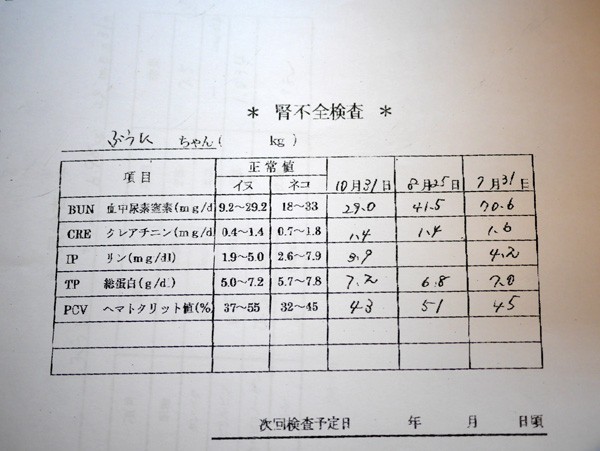 ＊ 腎不全検査 ＊
ぷうしん ちゃん( kg)
項目 正常値 10月31日 8月25日 7月31日
イヌ ネコ
BUN 血中尿素窒素(mg/d 9.2～29.2 18～33 29.0 41.5 70.6
CRE クレアチニン(mg/d 0.4～1.4 0.7～1.8 1.4 1.4 1.6
IP リン(mg/dl) 1.9～5.0 2.6～7.9 3.9 4.2
TP 総蛋白(g/d.) 5.0～7.2 5.7～7.8 7.2 6.8 7.0
PCV ヘマトクリット値(% 37～55 32～45 43 51 45
次回検査予定日 年 月 日頃